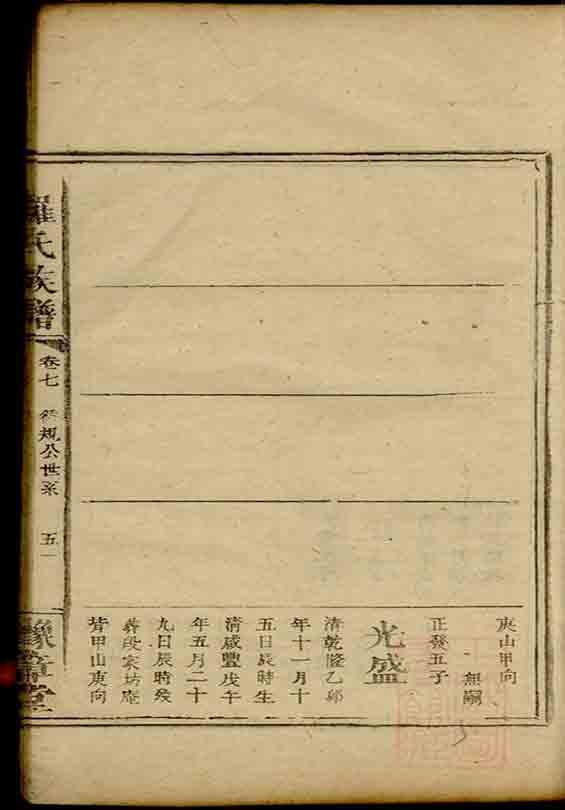 庚山甲向
無嗣
正發五子
光盛
清乾隆乙卯
年十一月十
五日辰時生
清咸豐戊午
年五月二十
九日辰時歿
葬段家坊庵
背甲山庚向
羅氏族譜
卷七
規公世系
五一
豫章堂